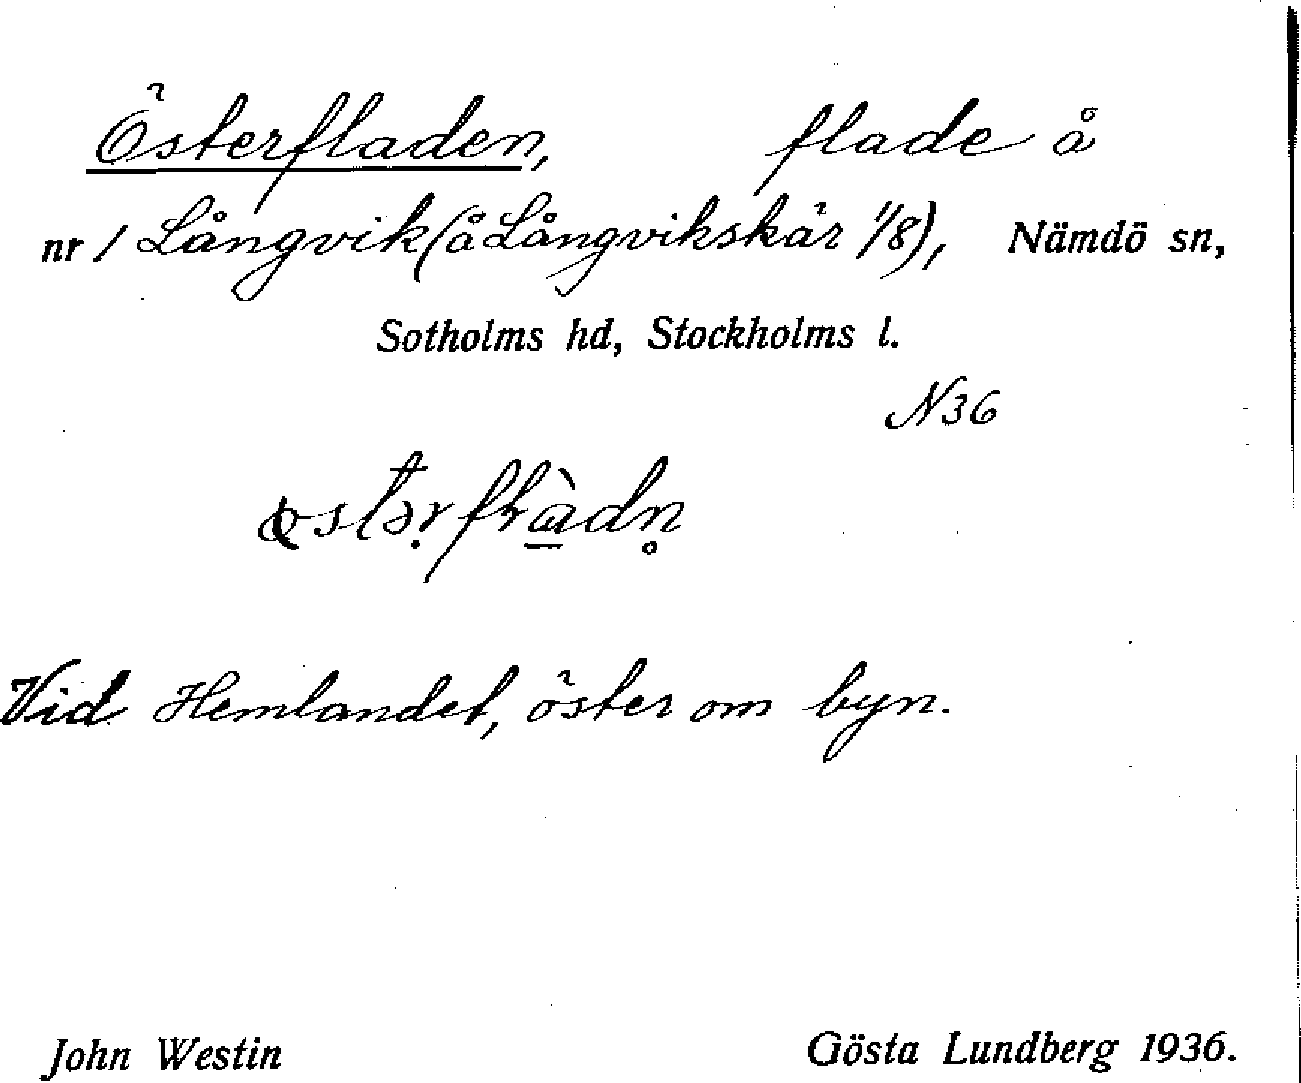 Österfladen, flade å
nr 1 Långvik (å Långvikskär 1/8), Nämdö sn,
Sotholms hd, Stockholms l.
N36
Vid Hemlandet, öster om byn.
John Westin Gösta Lundberg 1936.